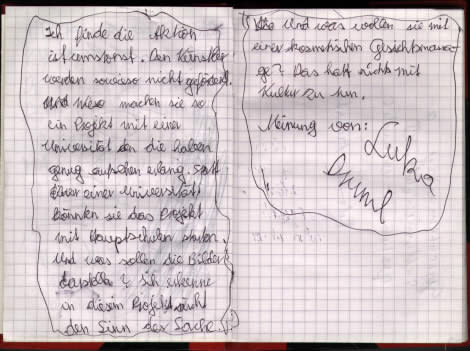 Ich finde die Aktion
ist umsonst. Den Künstler
werden sowieso nicht gefördert.
Und wieso machen sie so
ein Projekt mit einer
Universität den die haben
genug aufsehen erlang. Statt
einer Universität
könnten sie das Projekt
mit Hauptschulen
Und was sollen die Bilder
darstellen? Ich erkenne
in diesem Projekt nicht
den Sinn der Sache.
Und was wollen sie mit
einer kosmetischen Gesichtsmassa-
ge? Das hatt nichts mit
Kultur zu tun.
Meinung von:
Luka